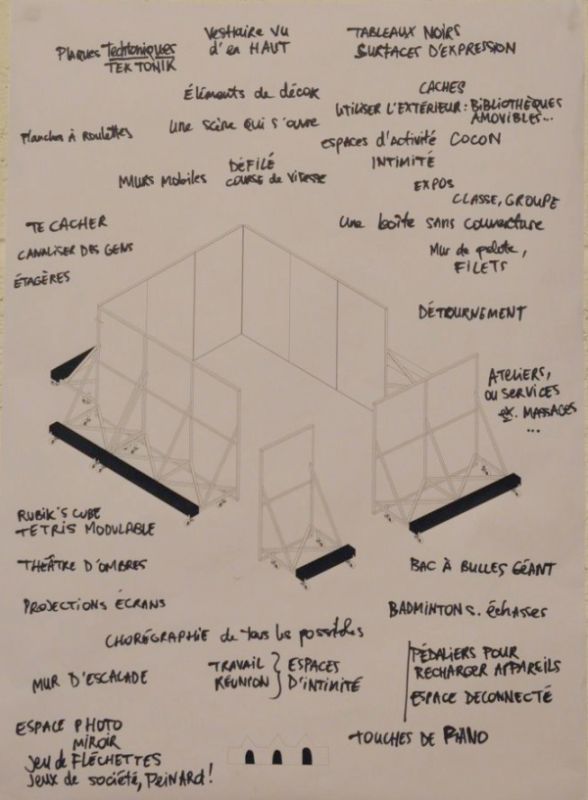 Plaques Techtoniques
TEKTONIK
Vestiaire vu
d'en HAUT
TABLEAUX NOIRS
SURFACES D'EXPRESSION
Éléments de décor
CACHES
UTILISER L'EXTÉRIEUR : BIBLIOTHÈQUES
AMOVIBLES...
Planches à roulettes
Une scène qui s'ouvre
espaces d'activité COCON
INTIMITÉ
DÉFILÉ
MURS Mobiles COURSE de VITESSE
EXPOS
CLASSE, GROUPE
TE CACHER
CANALISER DES GENS
ÉTAGÈRES
Une boîte sans couverture
Mur de pelote,
FILETS
DÉTOURNEMENT
ATELIERS,
OU SERVICES
ex. MASSAGES
...
RUBIK'S CUBE
TETRIS MODULABLE
THÉÂTRE D'OMBRES
BAC À BULLES GÉANT
PROJECTIONS ÉCRANS
BADMINTON s. échasses
CHORÉGRAPHIE de tous les possibles
MUR D'ESCALADE
TRAVAIL
RÉUNION
ESPACES
D'INTIMITÉ
PÉDALIERS POUR
RECHARGER APPAREILS
ESPACE DECONNECTÉ
ESPACE PHOTO
MIROIR
Jeu de FLÉCHETTES
Jeux de société, PEINARD!
TOUCHES DE PIANO